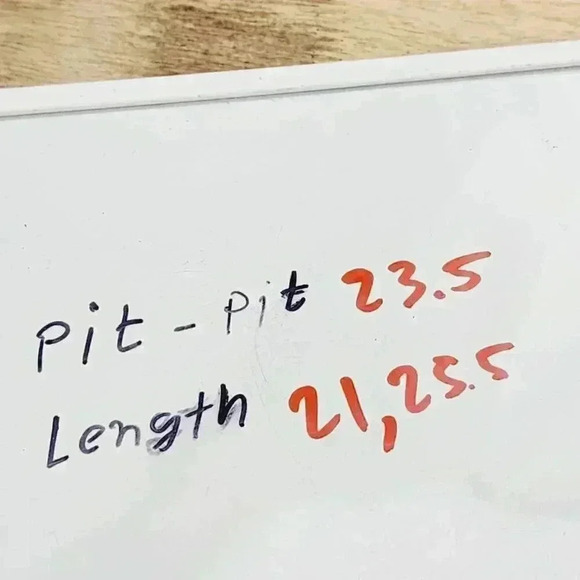 Pit - Pit 23.5
Length 21,25.5